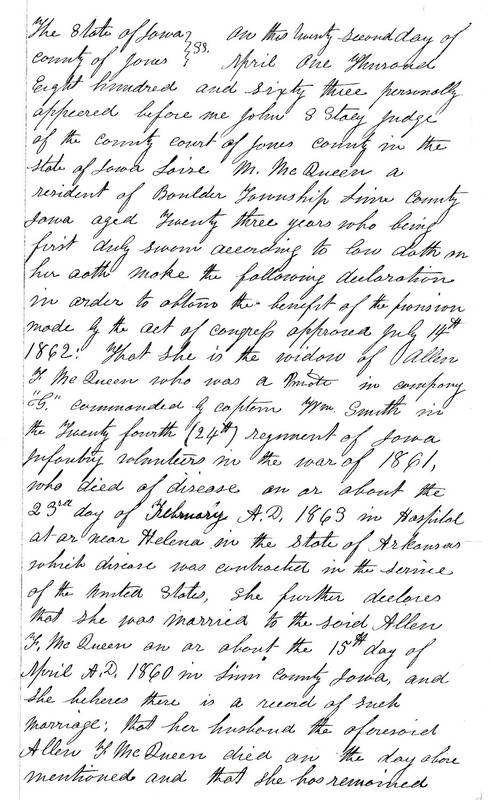 The State of Iowa } ss. On this twenty second day of
County of Jones } April One Thousand
Eight hundred and sixty three personally
appeered before me John S Stacy judge
of the county court of Jones county in the
state of Iowa Loise M. McQueen a
resident of Boulder Township Linn County
Iowa aged Twenty three years who being
first duly sworn according to law doth on
her oath make the following declaration
in order to obtain the benefit of the pension
made by the act of congress approved July 14th
1862: That she is the widow of Allen
F McQueen who was a Private in company
"G." commanded by captain Wm. Smith in
the Twenty fourth (24th) regiment of Iowa
Infantry volunteers in the war of 1861,
who died of disease on or about the
23rd day of February A.D. 1863 in Hospital
at or near Helena in the State of Arkansas
which disease was contracted in the service
of the United States, She further declares
that she was married to the said Allen
F. McQueen on or about the 15th day of
April A.D. 1860 in Linn County Iowa, and
she believes there is a record of such
marriage; that her husband the aforesaid
Allen F McQueen died on the day above
mentioned and that she has remained